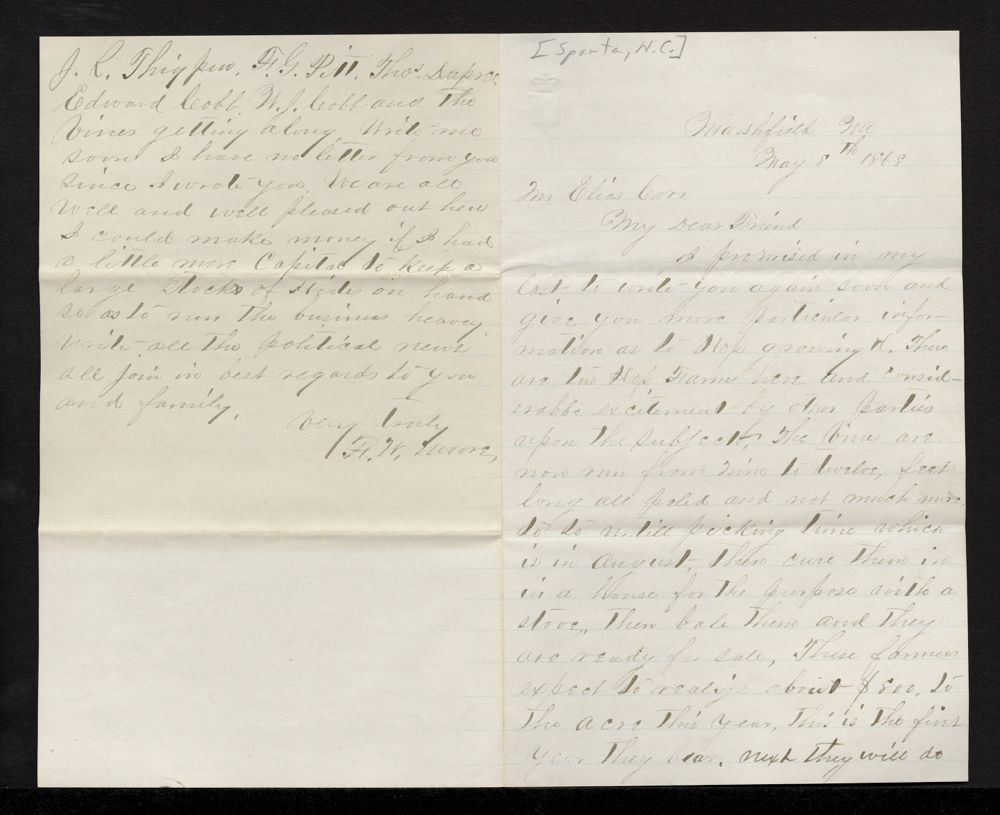 J. L. Thigpen, F. G. Pitt, Thos Dupree,
Edward Cobb, W. J. Cobb and the
Vines getting along, Write me
soon I have no letter from you
since I wrote you, We are all
well and well pleased out here
I could make money if I had
a little more Capital to keep a
large stocks of Hides on hand
so as to run the business heavey
write all the political news
all join in best regards to you
and family,
Very truly
F. W. Moore,
[Sparta, N.C.]
Marshfield Mo
May 8th 1868
Mr Elias Carr
My Dear Friend
I promised in my
last to write you again soon and
give you more particular infor-
mation as to Hop growing &. There
are two Hop Farms here and consid-
erabbe excitement by other parties
upon the subject, The Vines are
now run from nine to twelve, feet
long all poled and not much more
to do untill picking time which
is in august, then cure them in
in a house for the purpose with a
stove,, then bale them and they
are ready for sale, These farmers
expect to realize about $800, to
the acre this year, this is the first
year they bear, next they will do